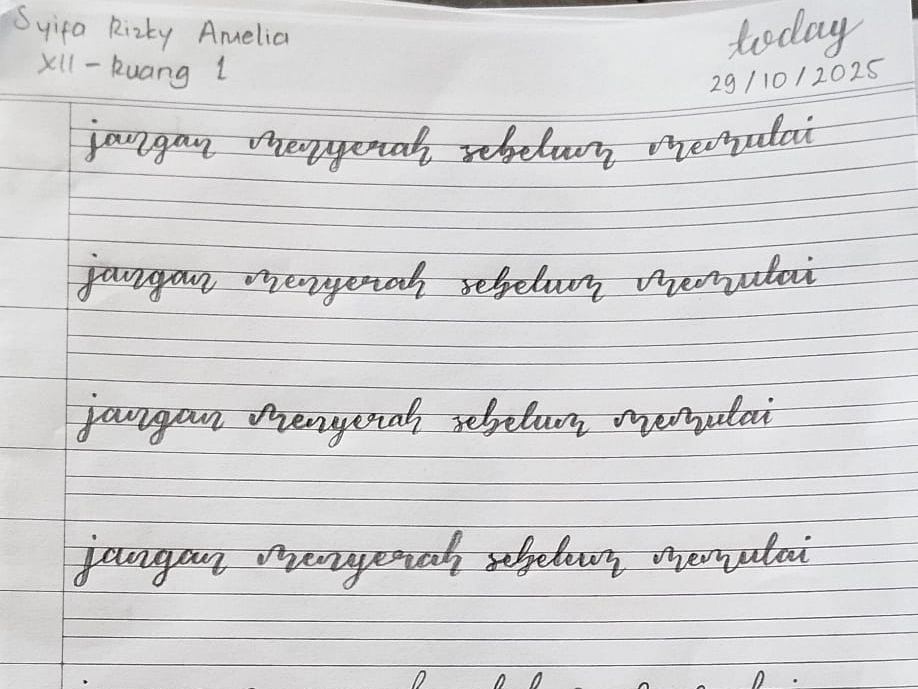 Syifa Rizky Amelia
XII - Ruang 1
today
29/10/2025
jangan menyerah sebelum memulai
jangan menyerah sebelum memulai
jangan menyerah sebelum memulai
jangan menyerah sebelum memulai